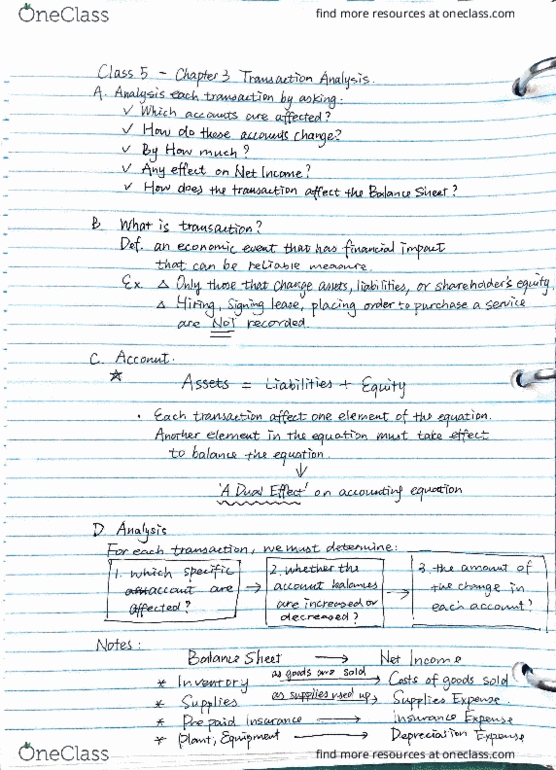 OneClass find more resources at oneclass.com
Class 5 - Chapter 3 Transaction Analysis.
A. Analysis each transaction by asking:
✓ Which accounts are affected?
✓ How do these accounts change?
✓ By How much?
✓ Any effect on Net Income?
✓ How does the transaction affect the Balance Sheet?
B. What is transaction?
Def. an economic event that has financial impact
that can be reliable measure.
Ex. △ Only those that change assets, liabilities, or shareholder's equity
△ Hiring, Signing lease, placing order to purchase a service
are NOT recorded.
C. Account.
☆ Assets = Liabilities + Equity
• Each transaction affect one element of the equation.
Another element in the equation must take effect
to balance the equation.
↓
'A Dual Effect' on accounting equation
D Analysis
For each transaction, we must determine:
1. which specific account are affected?
→
2. whether the account balances are increased or decreased?
→
3. the amount of the change in each account?
Notes:
Balance Sheet → Net Income
* Inventory as goods are sold → Costs of goods sold
* Supplies as supplies used up → Supplies Expense.
* Prepaid Insurance → insurance Expense
* Plant, Equipment → Depreciation Expense
OneClass find more resources at oneclass.com